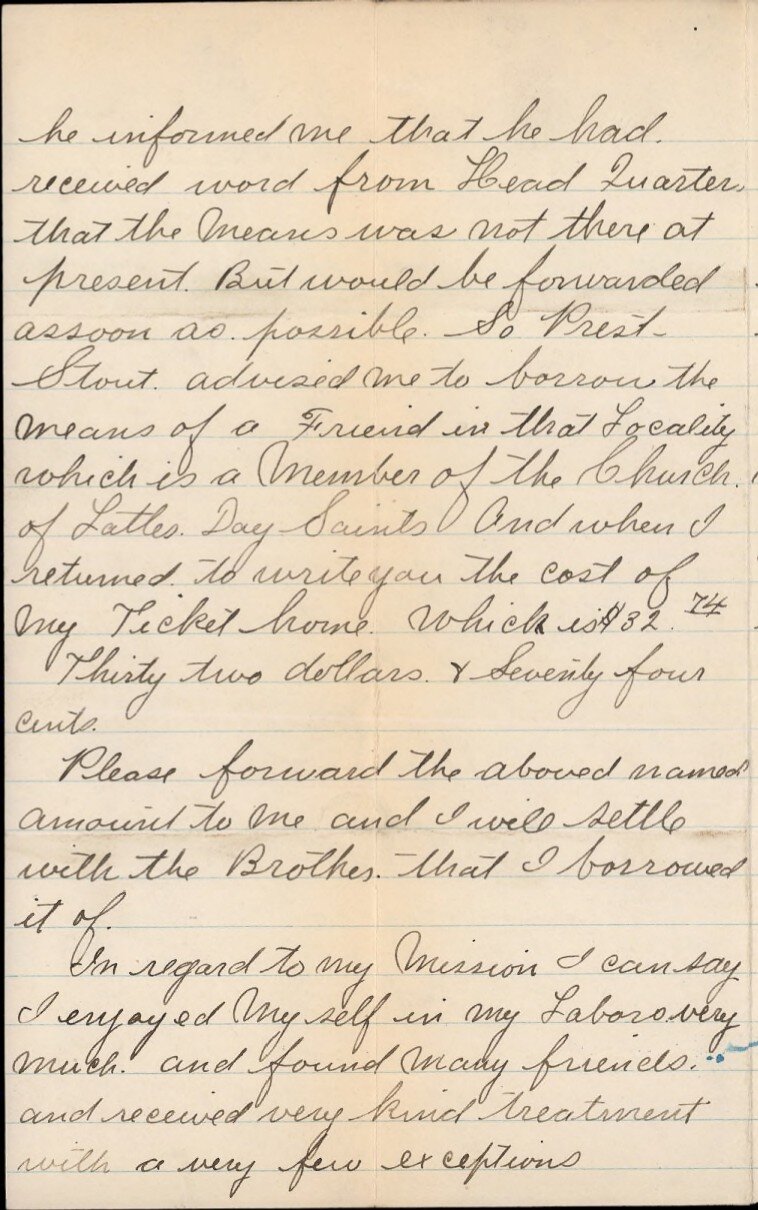 he informed me that he had.
received word from Head Quarters
that the Means was not there at
present. But would be forwarded
assoon as. possible. So Prest-
Stout. advised me to borrow the
means of a Friend in that Locality
which is a Member of the Church.
of Latles. Day Saints And when I
returned. to write you the cost of
My Ticket home. Which is $32.74
Thirty two dollars. & Seventy four
cents.
Please forward the aboved named
amount to me and I will settle
with the Brother. that I borrowed
it of.
In regard to my Mission I can say
I enjoyed Myself in my Labors very
much. and found many friends.
and received very kind treatment
with a very few exceptions